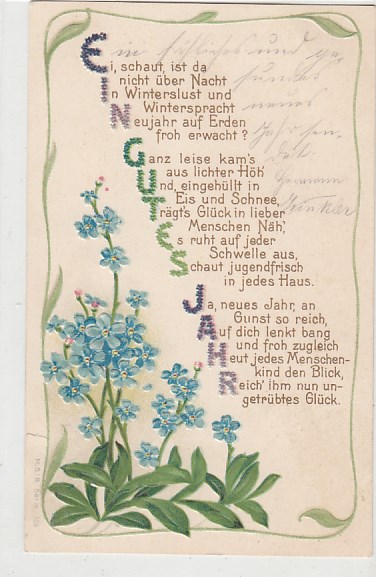 Ein fröhliches und ge-
sundes
neues
Jahr sen-
det
Hermann
Ei, schaut, ist da
nicht über Nacht
In Winterslust und
Winterspracht
Neujahr auf Erden
froh erwacht?
Ganz leise kam's
aus lichter Höh'
Und, eingehüllt in
Eis und Schnee,
Trägt's Glück in lieber
Menschen Näh',
Es ruht auf jeder
Schwelle aus,
Schaut jugendfrisch
in jedes Haus.
Ja, neues Jahr, an
Gunst so reich,
Auf dich lenkt bang
und froh zugleich
Heut jedes Menschen-
kind den Blick,
Reich' ihm nun un-
getrübtes Glück.